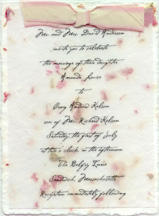 Mr. and Mrs. David Anderson
invite you to celebrate
the marriage of their daughter
Amanda
to
Nelson
son of Mr. Richard Nelson
Saturday, the first of July
at two o'clock in the afternoon
The
Massachusetts
Reception immediately following